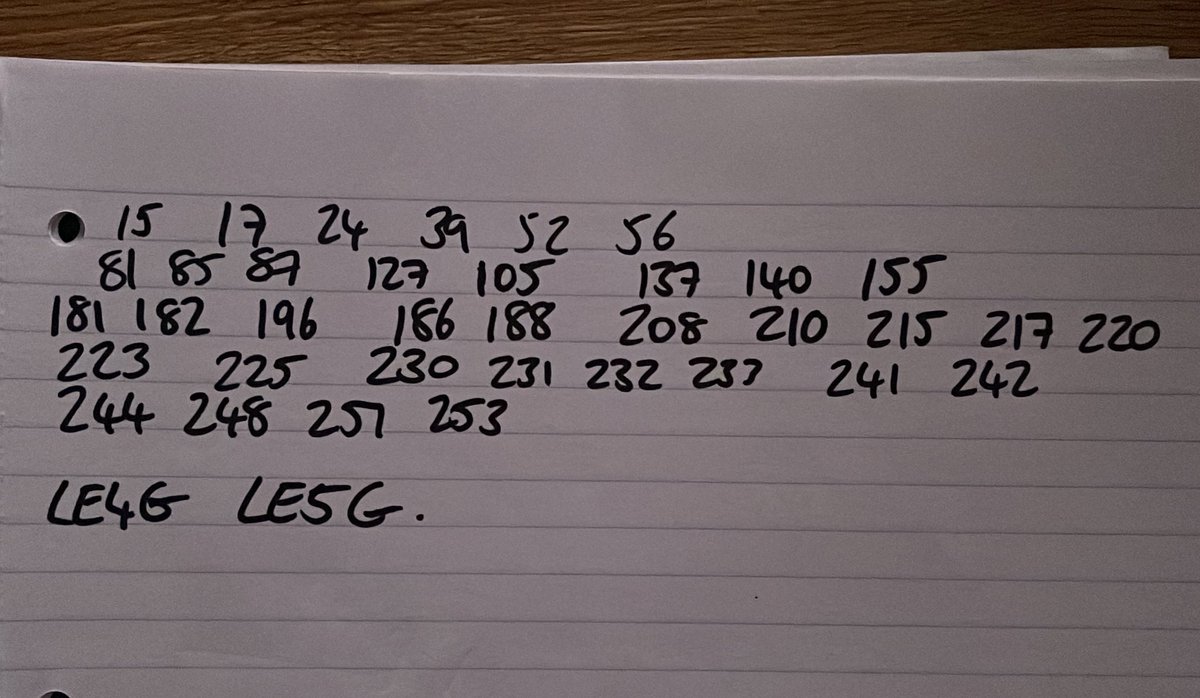 15 17 24 39 52 56
81 85 87 127 105 137 140 155
181 182 196 186 188 208 210 215 217 220
223 225 230 231 232 237 241 242
244 248 251 253
LE4G LE5G.